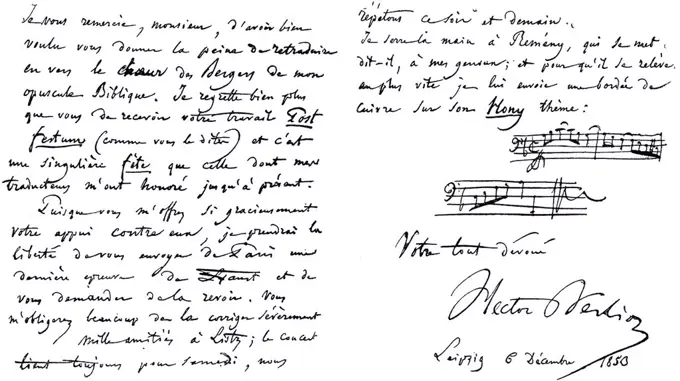 Je vous remercie, monsieur, d'avoir bien
voulu vous donner la peine de retraduire
en vers le chœur des Bergers de mon
opuscule Biblique. Je regrette bien plus
que vous de recevoir votre travail Post
festum (comme vous le dites) et c'est
une singulière fête que celle dont mes
traducteurs m'ont honoré jusqu'à présent.
Puisque vous m'offrez si gracieusement
votre appui contre eux, je prendrai la
liberté de vous envoyer de Paris une
dernière épreuve de Faust et de
vous demander de la revoir. Vous
m'obligerez beaucoup de la corriger sévèrement
Mille amitiés à Listz; le concert
tient toujours pour samedi, nous
répétons ce soir et demain.
Je serre la main à Remény, qui se met,
dit-il, à mes genoux; et pour qu'il se relève
plus vite je lui envoie une bordée de
cuivre sur son Hony thème:
Votre tout dévoué
Hector Berlioz
Leipzig 6 Décembre 1853